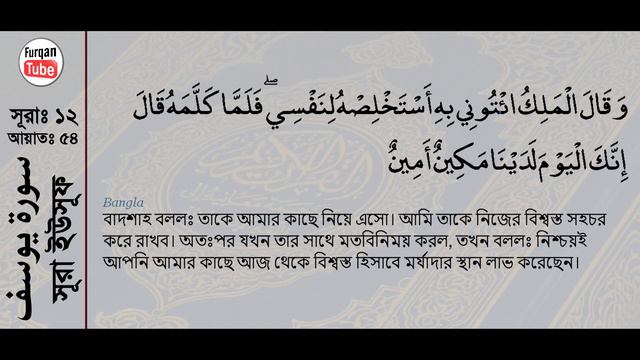 Furqan
Tube
সূরাঃ ১২
আয়াতঃ ৫৪
سورة يوسف
সূরা ইউসূফ
وَقَالَ الْمَلِكُ ائْتُونِي بِهِ أَسْتَخْلِصْهُ لِنَفْسِي ۖ فَلَمَّا كَلَّمَهُ قَالَ
إِنَّكَ الْيَوْمَ لَدَيْنَا مَكِينٌ أَمِينٌ
Bangla
বাদশাহ বললঃ তাকে আমার কাছে নিয়ে এসো। আমি তাকে নিজের বিশ্বস্ত সহচর
করে রাখব। অতঃপর যখন তার সাথে মতবিনিময় করল, তখন বললঃ নিশ্চয়ই
আপনি আমার কাছে আজ থেকে বিশ্বস্ত হিসাবে মর্যাদার স্থান লাভ করেছেন।